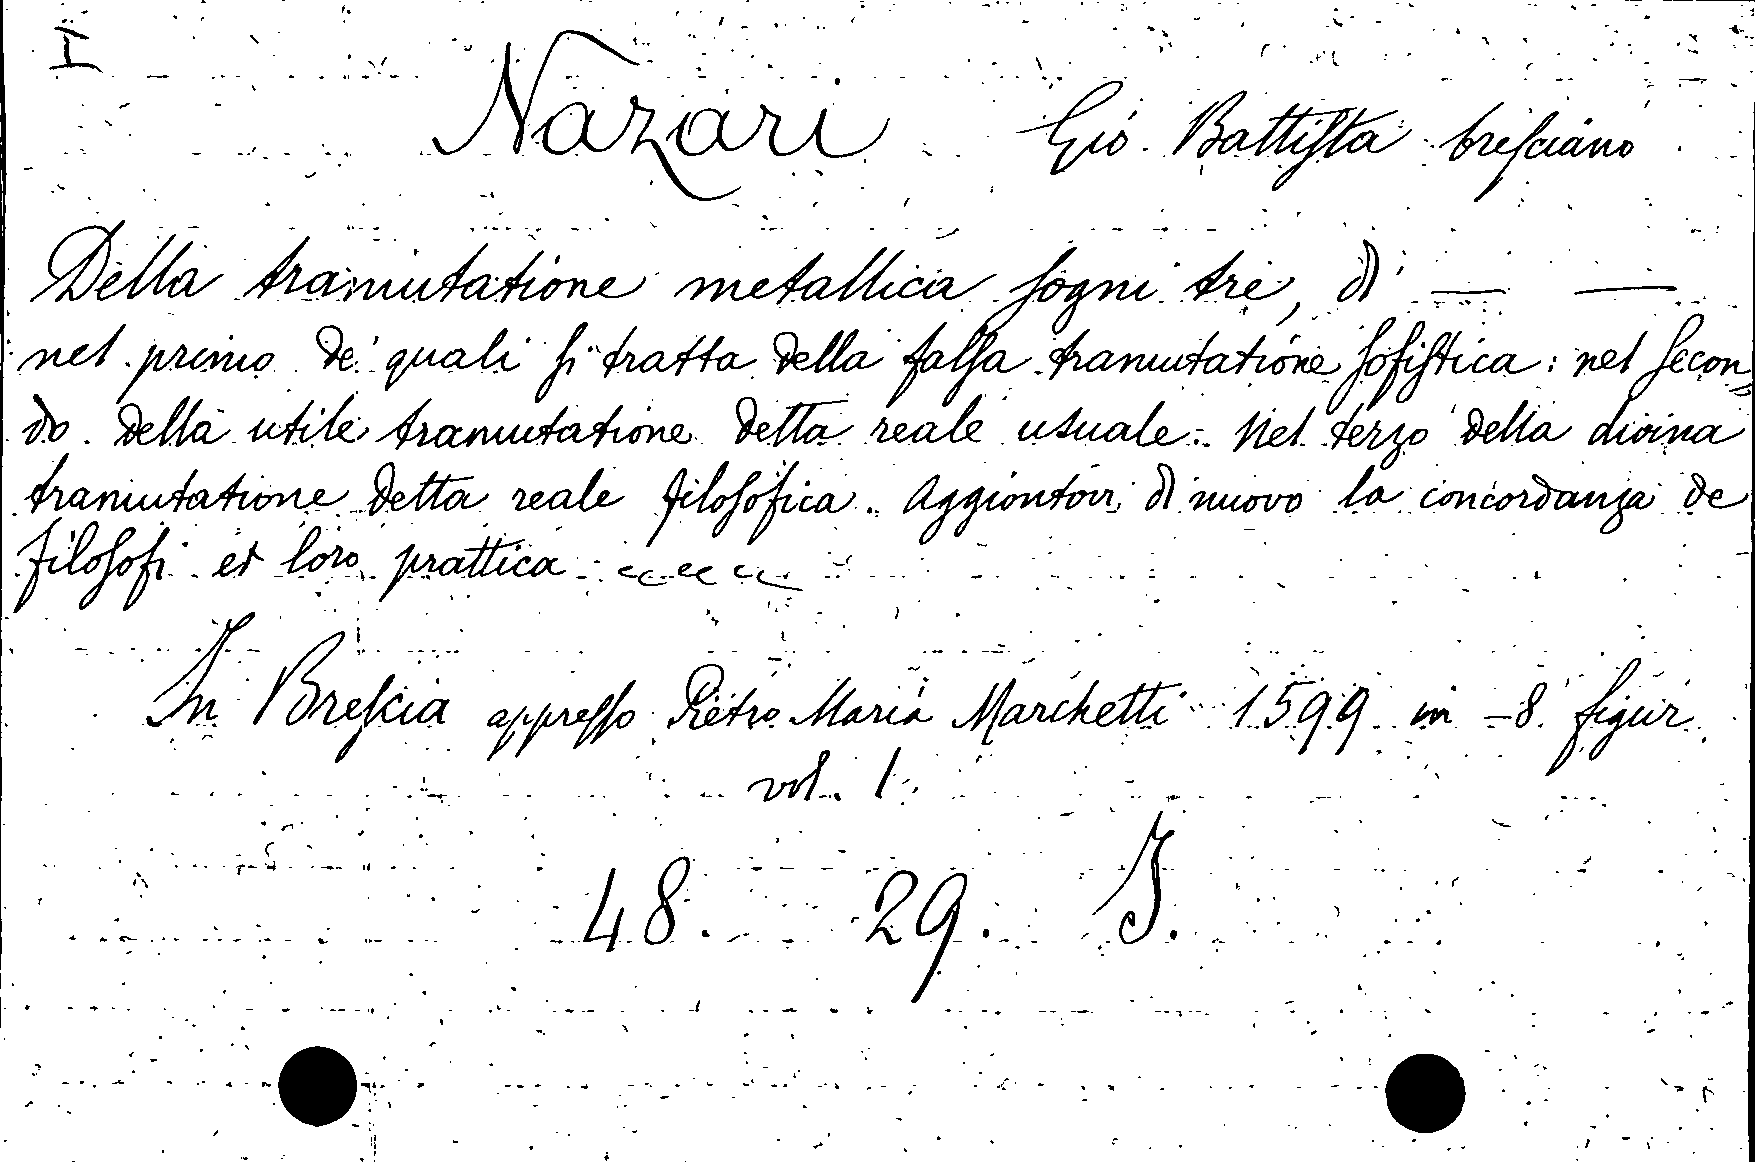 I
Nazari Gio. Battiſta breſciano
Della tramutatione metallica ſogni tre, di — —
nel primo de' quali ſi tratta della falſa tramutatione ſofiſtica: nel ſecon„
do della utile tramutatione detta reale usuale. Nel terzo della divina
tramutatione detta reale filoſofica. Aggiontovi di nuovo la concordanza de
filoſofi et loro prattica.
In Breſcia appreſſo Pietro Maria Marchetti 1599 in -8. figur.
vol. 1.
48. 29. I.